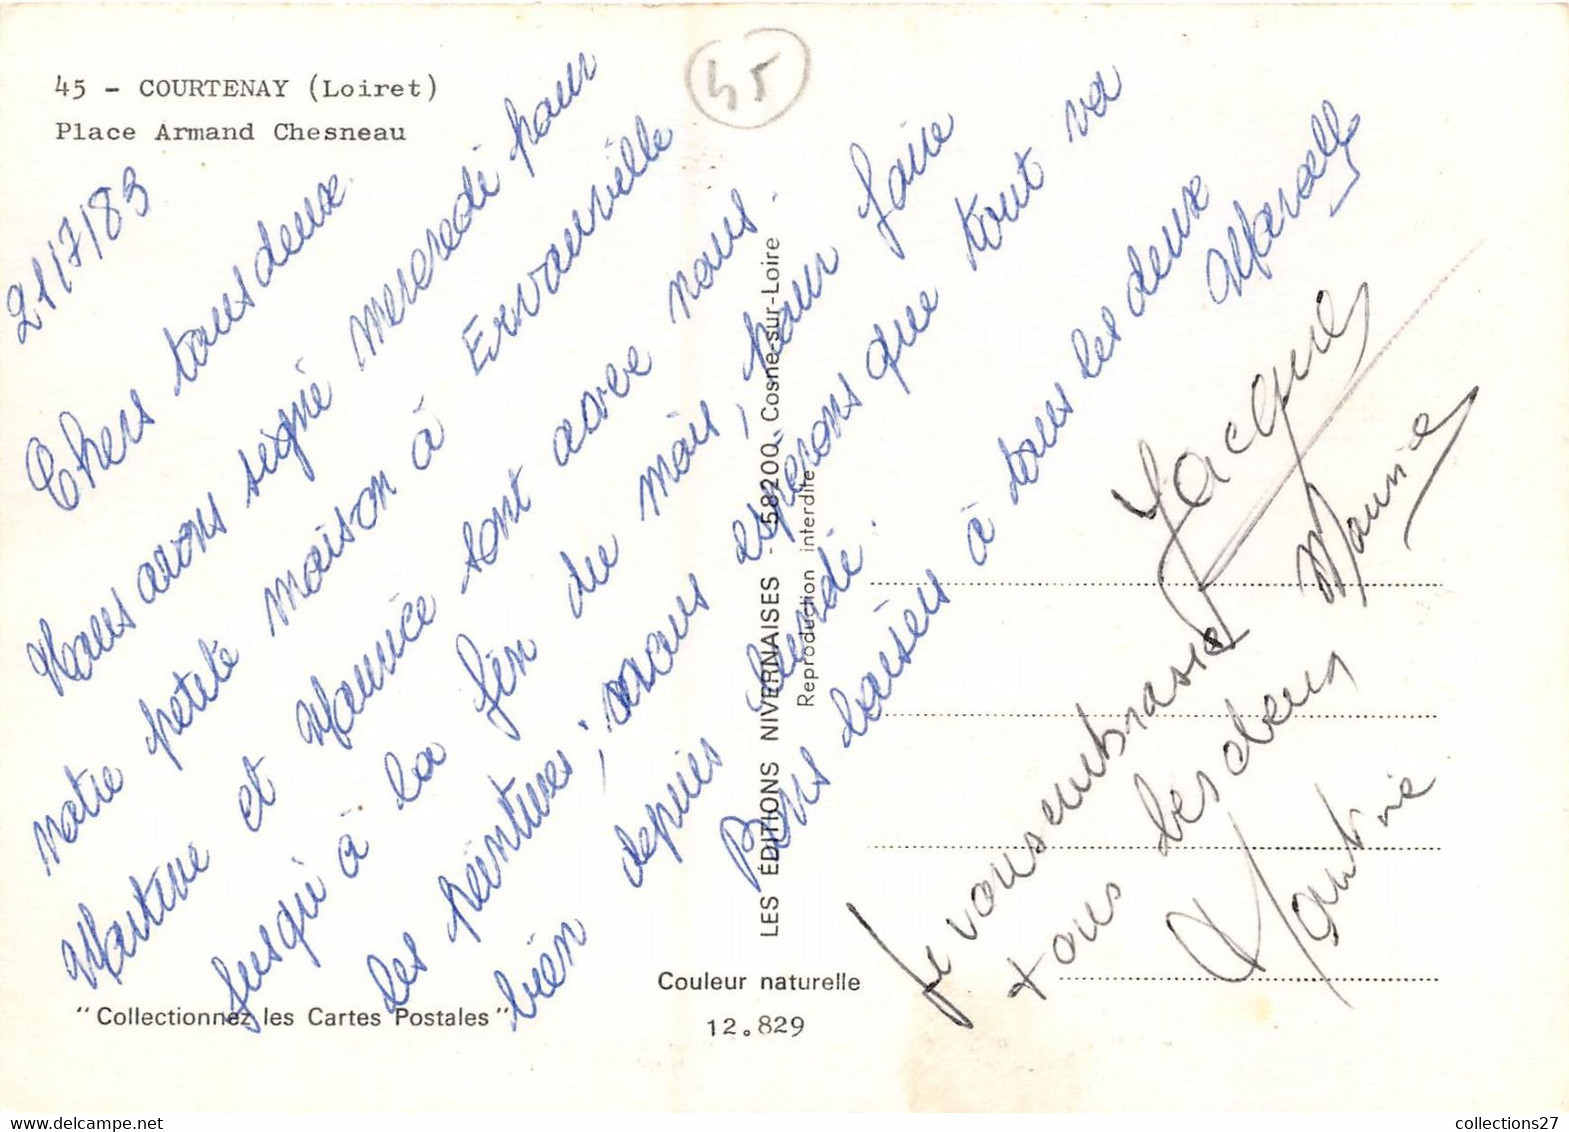 45 - COURTENAY (Loiret)
Place Armand Chesneau
45
21/7/83
Chers tous deux.
Nous avons signé mercredi pour
notre petite maison à Ervauville
Martine et Maurice sont avec nous.
jusqu'à la fin du mois, pour faire
les peintures; nous espérons que tout va
bien depuis lundi.
Bons baisers à tous les deux
Marcelle
Jacques
Maurice
Je vous embrasse
tous les deux
Martine
LES ÉDITIONS NIVERNAISES - 58200 Cosne-sur-Loire
Reproduction interdite
"Collectionnez les Cartes Postales"
Couleur naturelle
12.829
collections27